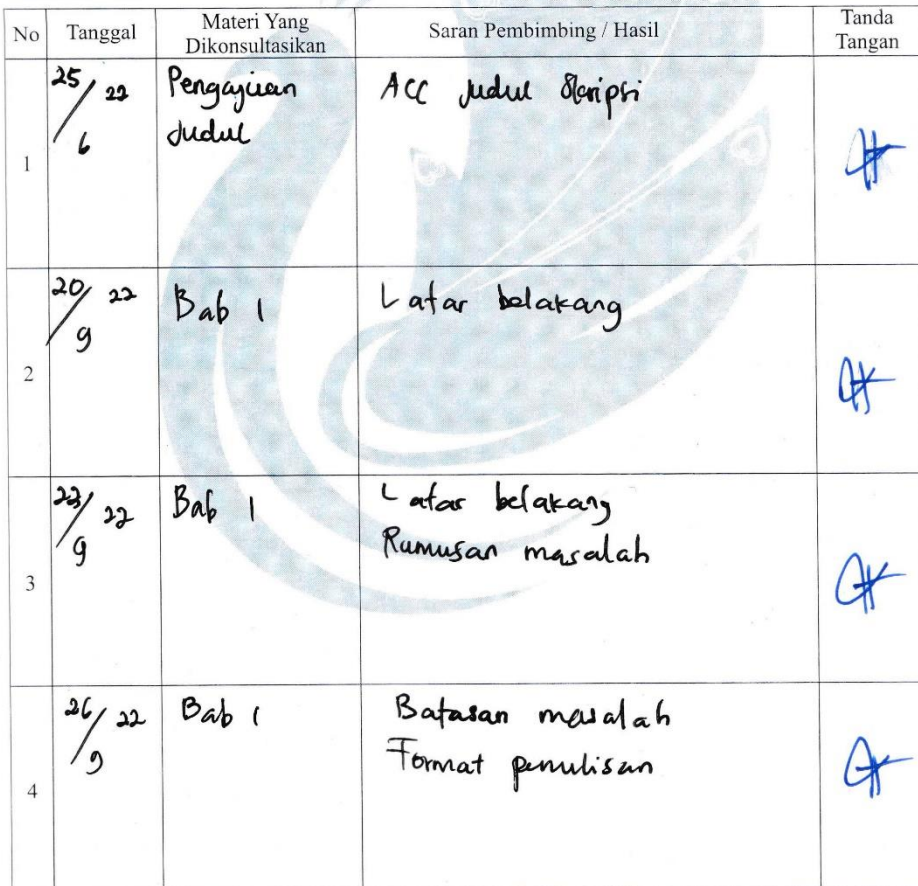 No Tanggal Materi Yang Dikonsultasikan Saran Pembimbing / Hasil Tanda Tangan
1 25/6 22 Pengajuan ACC judul Skripsi
Judul
2 20/9 22 Bab 1 Latar belakang
3 22/9 22 Bab 1 Latar belakang
Rumusan masalah
4 26/9 22 Bab 1 Batasan masalah
Format penulisan